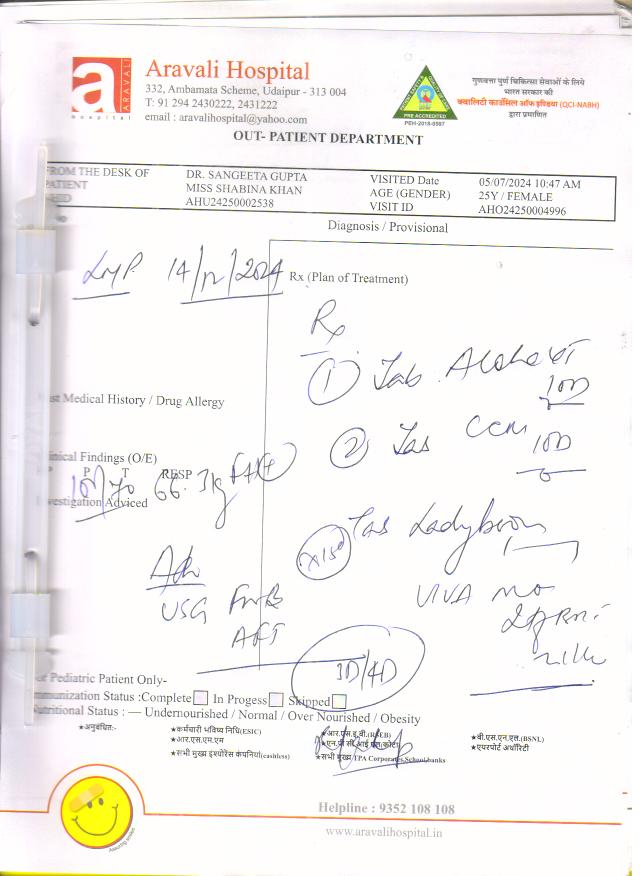 a
ARAVALI
hospital
Aravali Hospital
332, Ambamata Scheme, Udaipur - 313 004
T: 91 294 2430222, 2431222
email : aravalihospital@yahoo.com
PRE ACCREDITED
PEH-2018-0597
गुणवत्ता पूर्ण चिकित्सा सेवाओं के लिये
भारत सरकार की
क्वालिटी काउंसिल ऑफ इण्डिया (QCI-NABH)
द्वारा प्रमाणित
OUT- PATIENT DEPARTMENT
FROM THE DESK OF DR. SANGEETA GUPTA VISITED Date 05/07/2024 10:47 AM
PATIENT MISS SHABINA KHAN AGE (GENDER) 25Y / FEMALE
AHU24250002538 VISIT ID AHO24250004996
Diagnosis / Provisional
LMP 14/12/2024
Rx (Plan of Treatment)
Rx
① Tab
10D
st Medical History / Drug Allergy
② Tab CCM 10D
inical Findings (O/E)
P T RESP
70 66.3kg
vestigation Adviced
Tab Ladyboon
x15d
Adv
USG FWB
AFI
3D/4D
r Pediatric Patient Only-
mmunization Status :Complete In Progess Skipped
utritional Status : — Undernourished / Normal / Over Nourished / Obesity
★अनुबंधित:-
★कर्मचारी भविष्य निधि(ESIC)
★आर.एस.एम.एम
★सभी मुख्य इंश्योरेंस कंपनियां(cashless)
★सभी मुख्य TPA Corporates,School,banks
★बी.एस.एन.एल.(BSNL)
★एयरपोर्ट अथॉरिटी
Assuring smiles
Helpline : 9352 108 108
www.aravalihospital.in